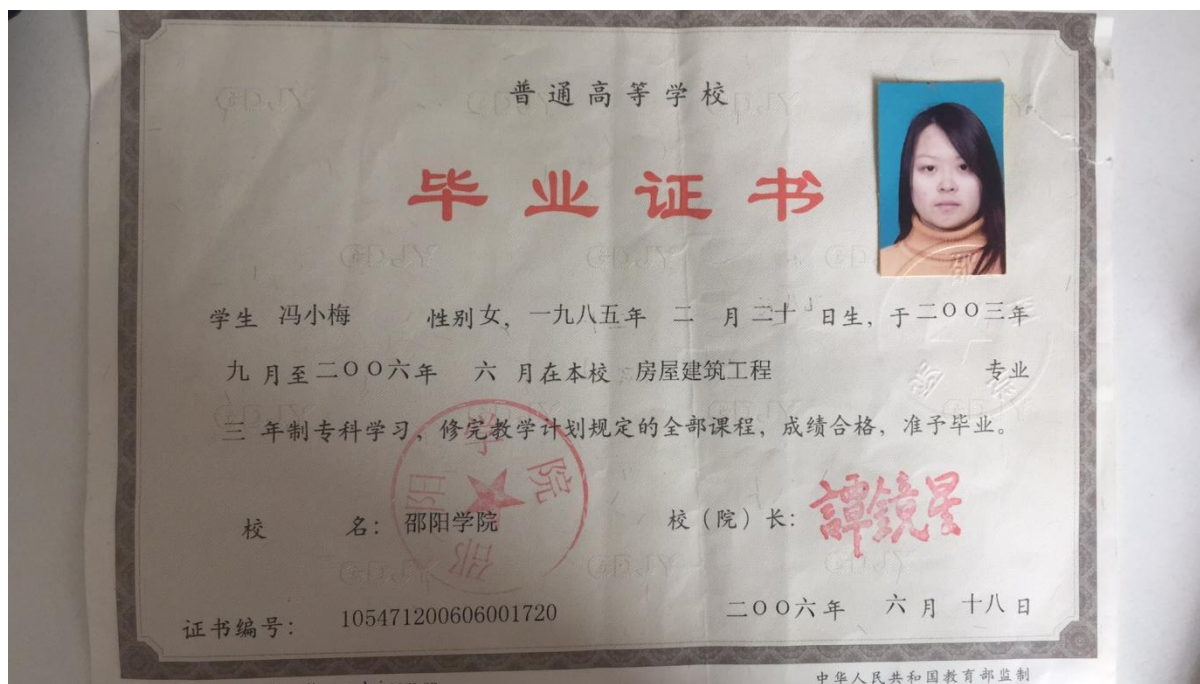 普通高等学校
毕业证书
学生 冯小梅 性别 女，一九八五年 二 月 二十 日生，于二〇〇三年
九 月至二〇〇六年 六 月在本校 房屋建筑工程 专业
三 年制专科学习，修完教学计划规定的全部课程，成绩合格，准予毕业。
校 名：邵阳学院
邵阳学院
校（院）长：譚鏡星
证书编号：105471200606001720
二〇〇六年 六 月 十八 日
中华人民共和国教育部监制